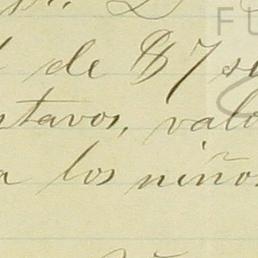 de $7 se
ntavos, valo
a los niños